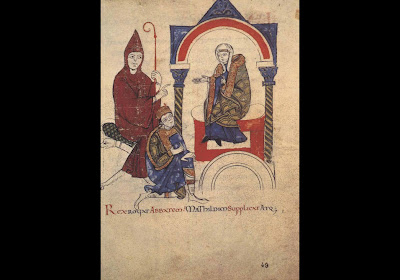 REX ROGAT ABBATEM MATHILDIM SUPPLICAT ATQ;
49